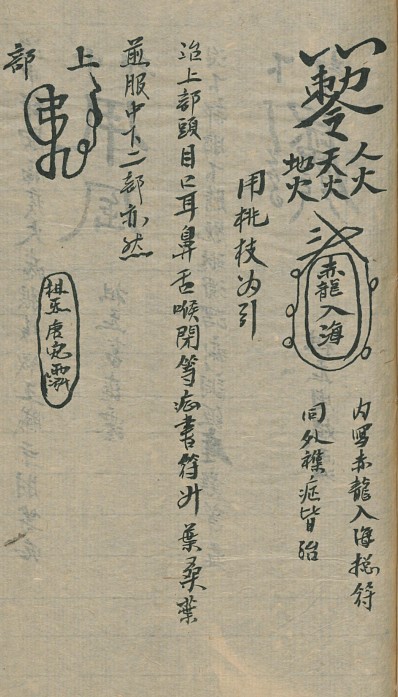 敕令
人火
天火
地火
赤龍入海
内写赤龍入海總符
同外襍症皆治
用桃枝为引
治上部頭目口耳鼻舌喉閉等症書符廾葉桑葉
煎服中下二部亦然
上部